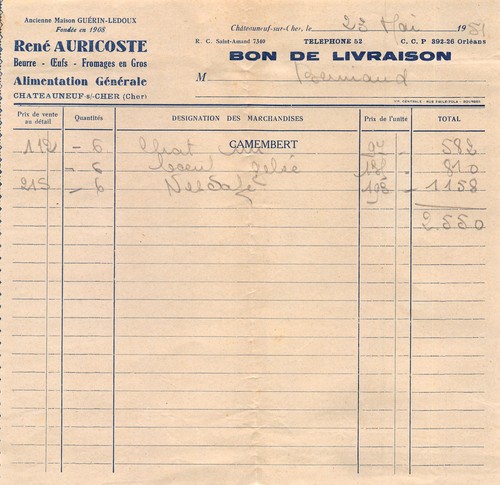 Ancienne Maison GUÉRIN-LEDOUX
Fondée en 1908
René AURICOSTE
Beurre - Œufs - Fromages en Gros
Alimentation Générale
CHATEAUNEUF-s/-CHER (Cher)
Châteauneuf-sur-Cher, le 23 Mai 195
R. C. Saint-Amand 7340 TELEPHONE 52 C. C. P 392-26 Orléans
BON DE LIVRAISON
M
Prix de vente au détail Quantités DESIGNATION DES MARCHANDISES Prix de l'unité TOTAL
CAMEMBERT
112 - 6 97 - 582
- 6 - 810
215 - 6 Nescafé 193 - 1158
2.550